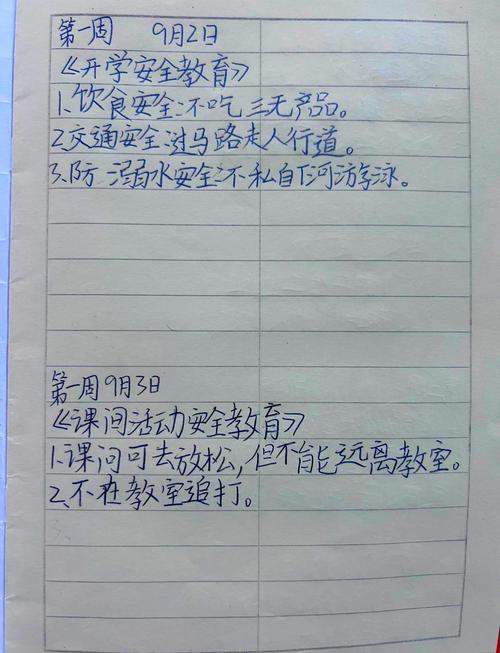 第一周 9月2日
《开学安全教育》
1.饮食安全:不吃三无产品。
2.交通安全:过马路走人行道。
3.防溺水安全:不私自下河游泳。
第一周9月3日
《课间活动安全教育》
1.课间可去放松,但不能远离教室。
2.不在教室追打。